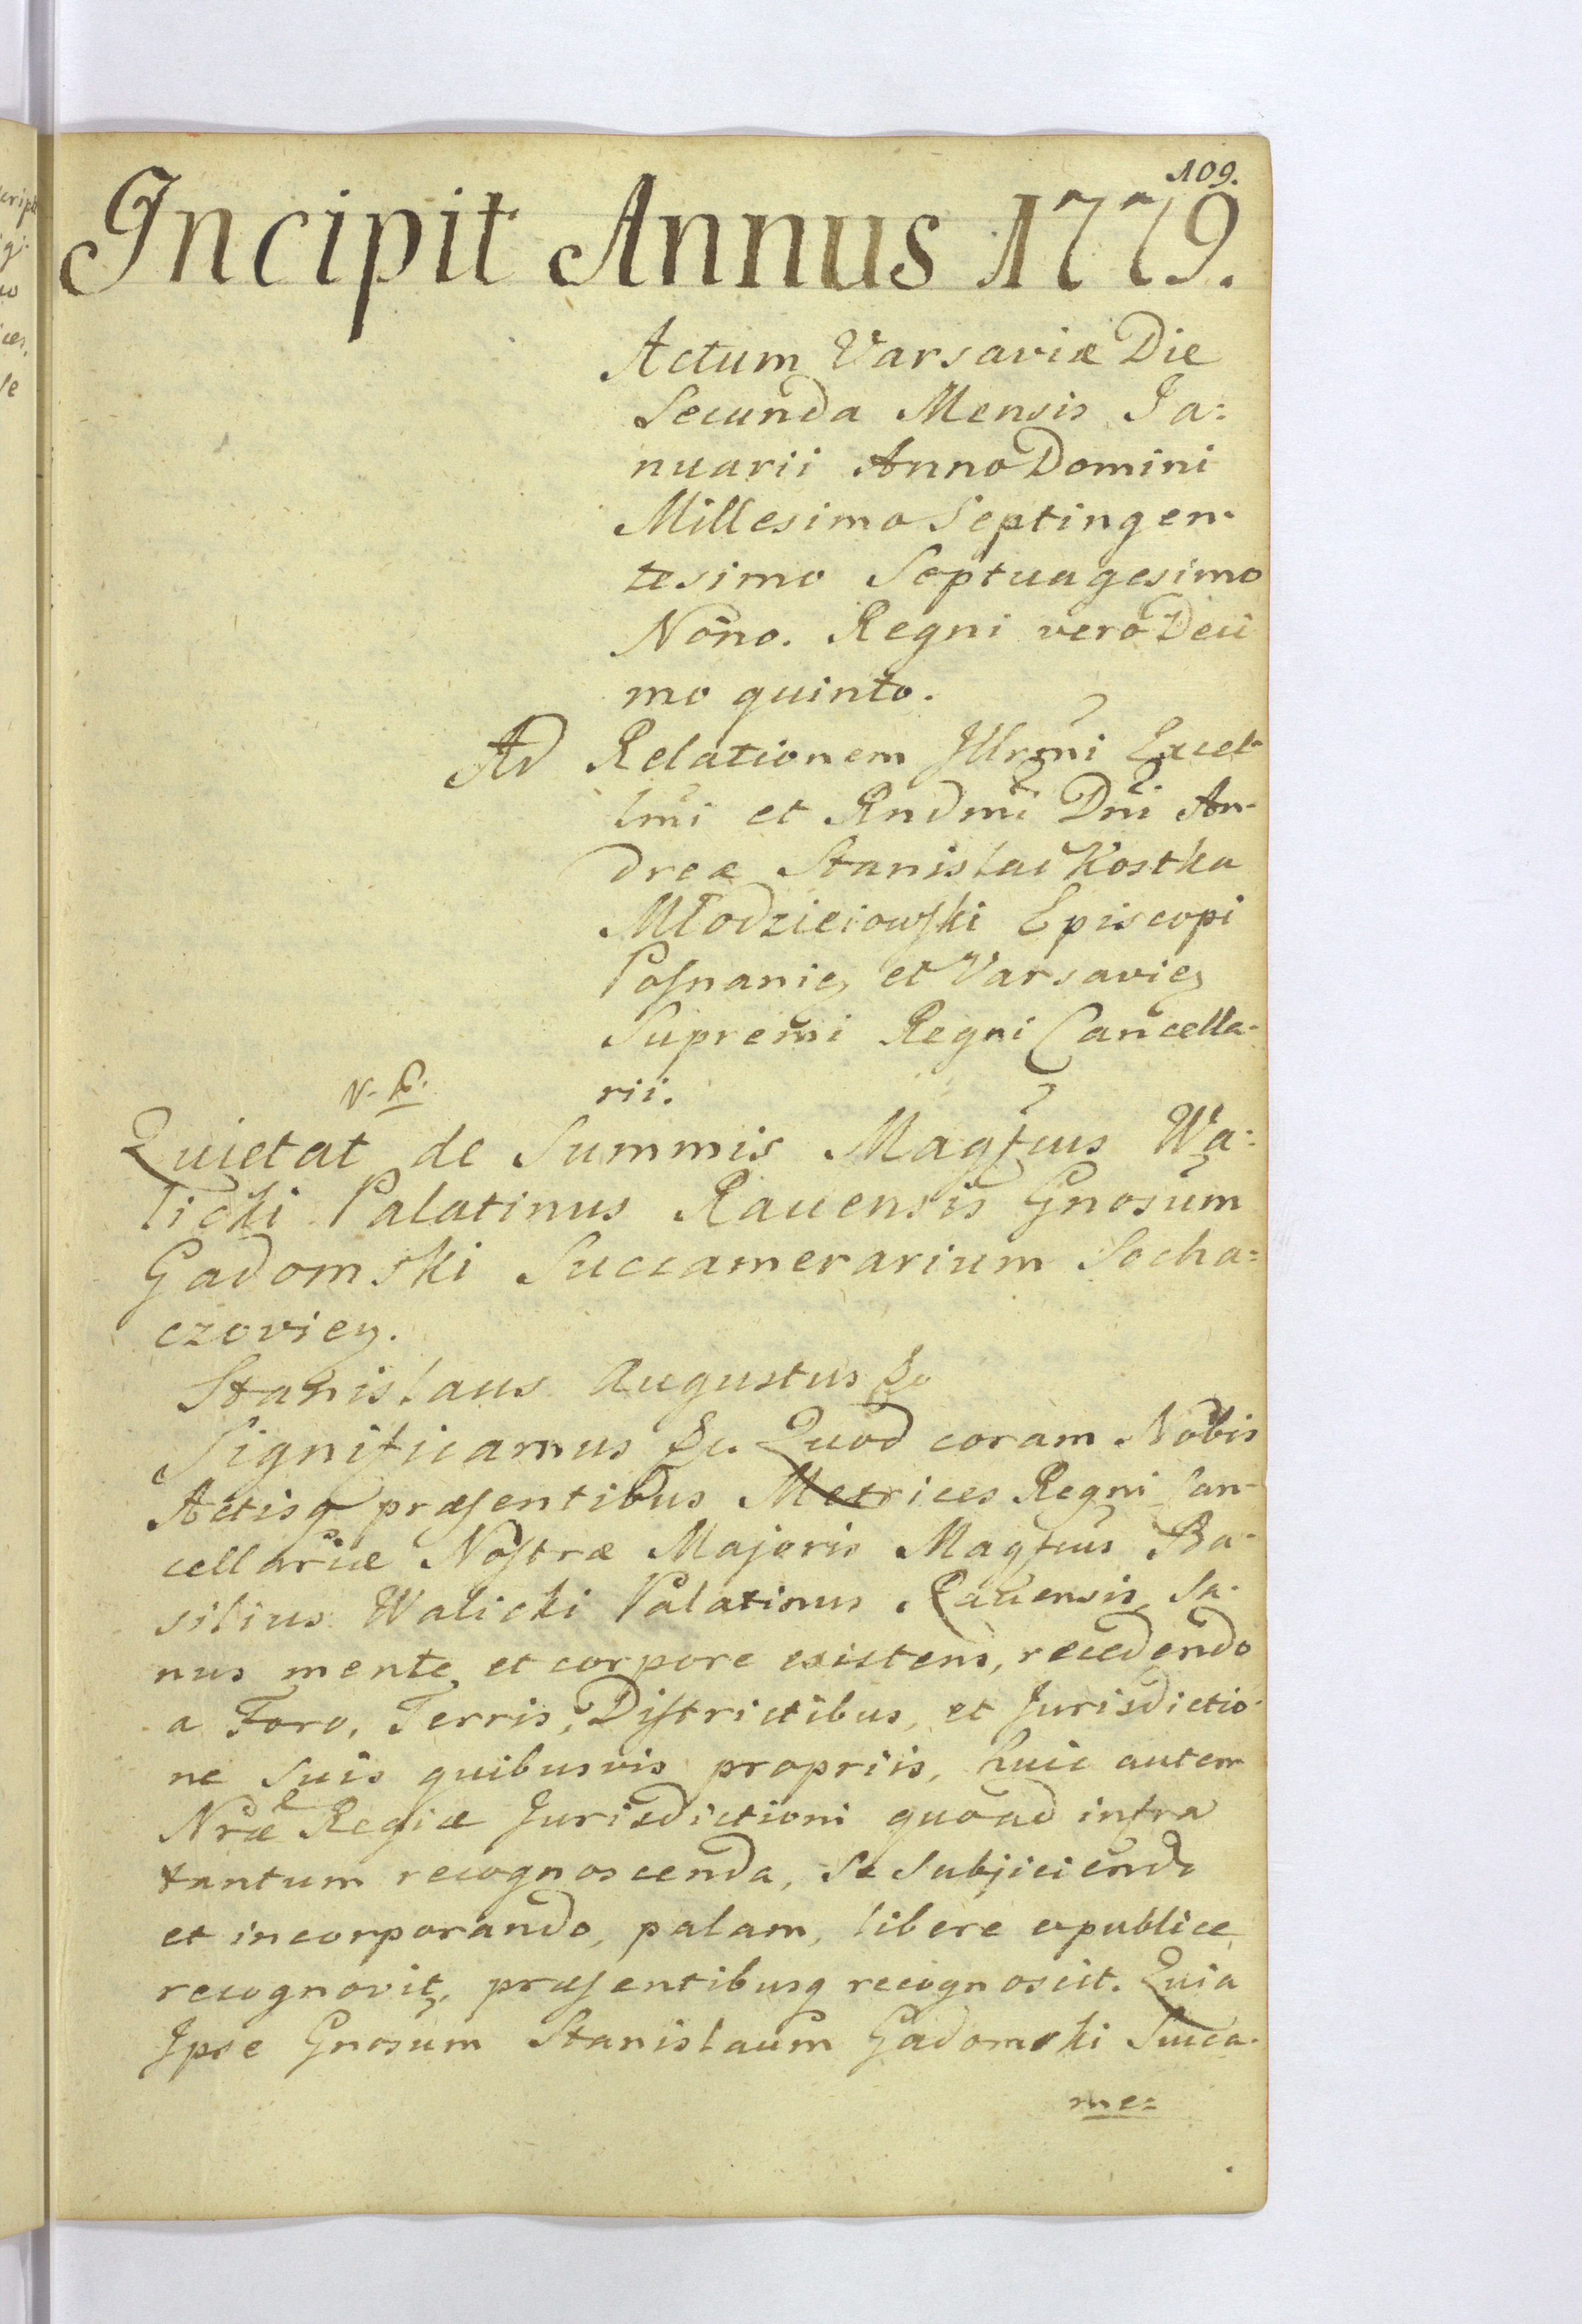 109.
Incipit Annus 1779.
Actum Varsaviæ Die
Secunda Mensis Ja:
nuarii Anno Domini
Millesimo Septingen-
tesimo Septuagesimo
Nono. Regni vero Deci
mo quinto.
Ad Relationem Illrmi Excel-
lmi et Rndmi Dni An-
dreæ Stanislai Kostka
Młodzieiowſki Episcopi
Poſnanien et Varsavien
Supremi Regni Cancella-
rii.
Quietat de Summis Magfcus Wa:
licki Palatinus Ravensis Gnosum
Gadomski Succamerarium Socha=
czovien.
Stanislaus Augustus &c
Significamus &c. Quod coram Nobis
Actisq præſentibus Metrices Regni Can-
cellariæ Noſtræ Majoris Magfcus Ba-
silius Walicki Palatinus Ravensis, Sa-
nus mente et corpore existens, recedendo
a Foro, Terris, Diſtrictibus, et Jurisdictio-
ne Suis quibusvis propriis, huic autem
Nræ Regiæ Jurisdictioni quoad infra
tantum recognoscenda, Se Subjiciendo
et incorporando, palam, libere ac publice
recognovit, præſentibusq recognoscit. Quia
Ipse Gnosum Stanislaum Gadomski Succa-
me=